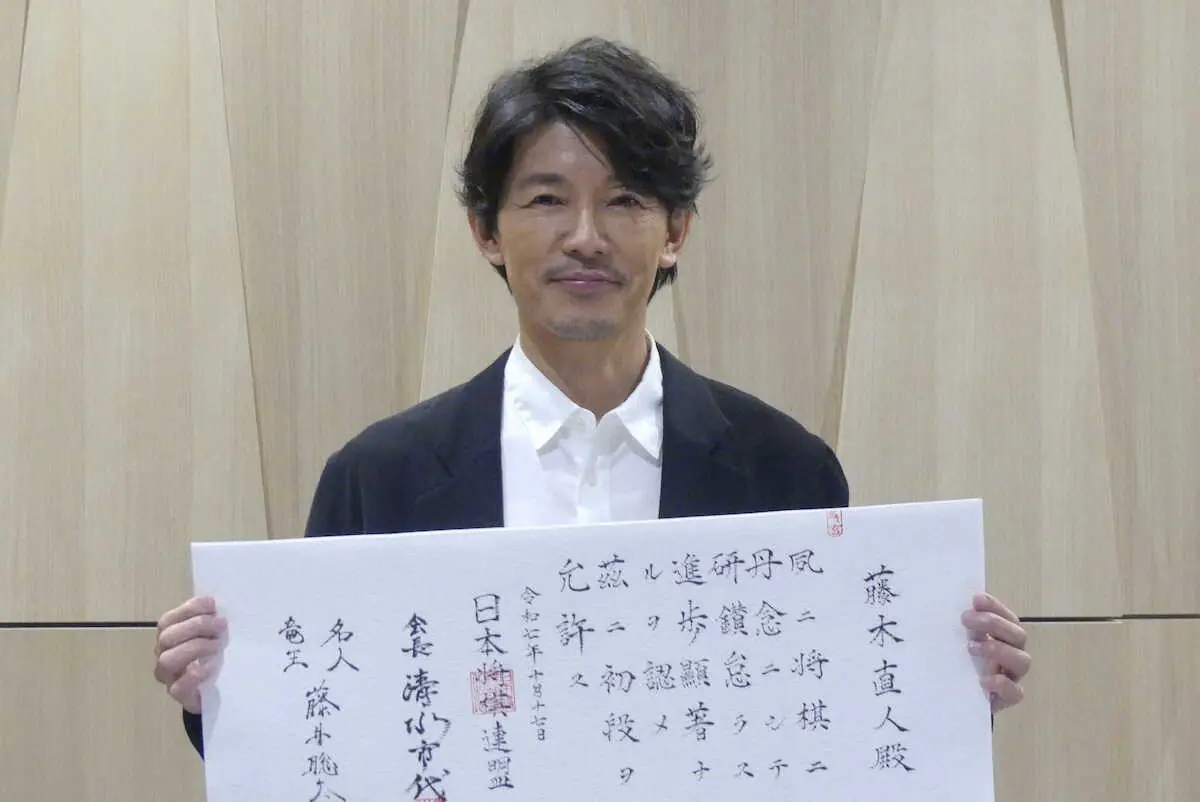 藤木直人殿
夙ニ将棋ニ
丹念ニシテ
研鑚怠ラス
進歩顯著ナ
ルヲ認メ
茲ニ初段ヲ
允許ス
令和七年十月十七日
日本将棋連盟
会長清水市代
名人
竜王
藤井聡太